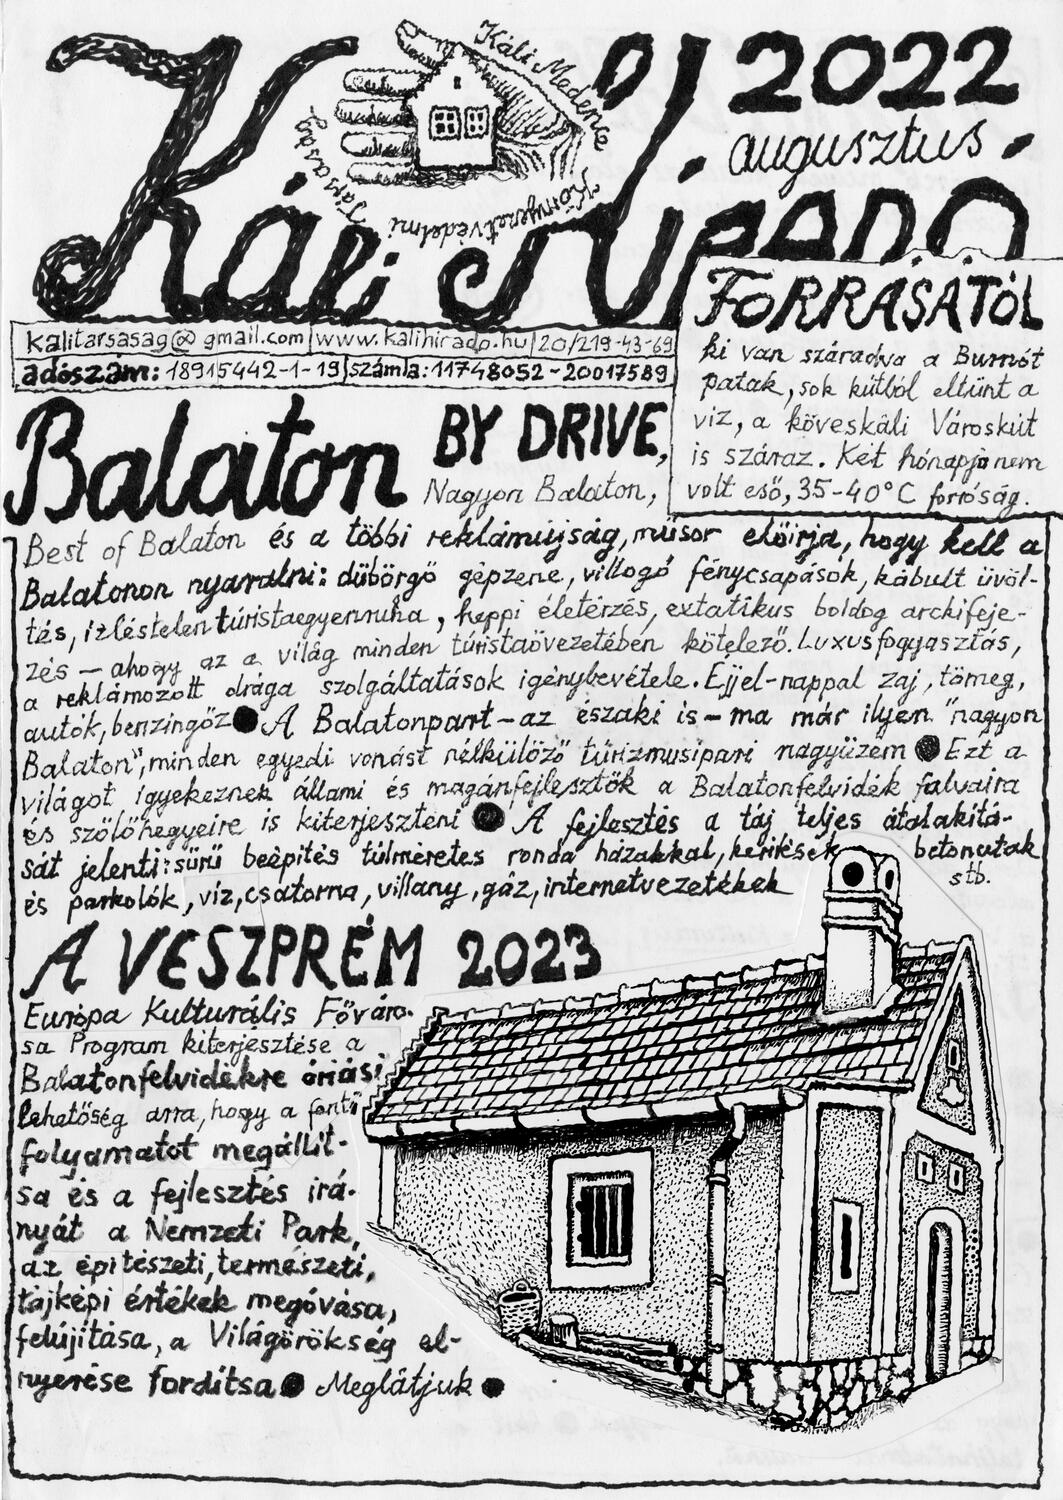 Káli Híradó
Káli Medence
Környezetvédelmi
Társaság
2022
augusztus
kalitarsasag@gmail.com www.kalihirado.hu 20/219-43-69
adószám: 18915442-1-19 számla: 11748052-20017589
FORRÁSÁTÓL
ki van száradva a Burnót
patak, sok kútból eltűnt a
víz, a köveskáli Városkút
is száraz. Két hónapja nem
volt eső, 35-40°C forróság.
Balaton BY DRIVE,
Nagyon Balaton,
Best of Balaton és a többi reklámújság, műsor előírja, hogy kell a
Balatonon nyaralni: dübörgő gépzene, villogó fénycsapások, kábult üvöl-
tés, ízléstelen túristaegyenruha, heppi életérzés, extatikus boldog archifeje-
zés – ahogy az a világ minden túristaövezetében kötelező. Luxusfogyasztás,
a reklámozott drága szolgáltatások igénybevétele. Éjjel-nappal zaj, tömeg,
autók, benzingőz ● A Balatonpart – az északi is – ma már ilyen "nagyon
Balaton", minden egyedi vonást nélkülöző turizmusipari nagyüzem ● Ezt a
világot igyekeznek állami és magánfejlesztők a Balatonfelvidék falvaira
és szőlőhegyeire is kiterjeszteni ● A fejlesztés a táj teljes átalakítá-
sát jelenti: sűrű beépítés túlméretes ronda házakkal, kerítések betonutak
és parkolók, víz, csatorna, villany, gáz, internetvezetékek stb.
A VESZPRÉM 2023
Európa Kulturális Főváro-
sa Program kiterjesztése a
Balatonfelvidékre óriási
lehetőség arra, hogy a fenti
folyamatot megállít-
sa és a fejlesztés irá-
nyát a Nemzeti Park,
az építészeti, természeti,
tájképi értékek megóvása,
felújítása, a Világörökség el-
nyerése fordítsa ● Meglátjuk ●